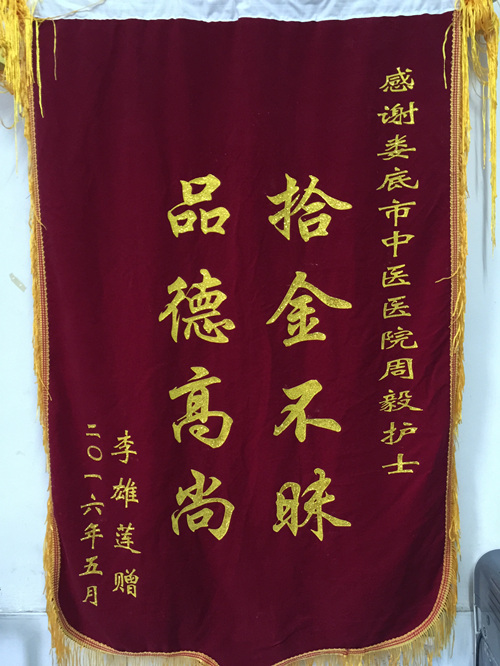 感谢娄底市中医医院周毅护士
拾金不昧
品德高尚
李雄莲赠
二〇一六年五月